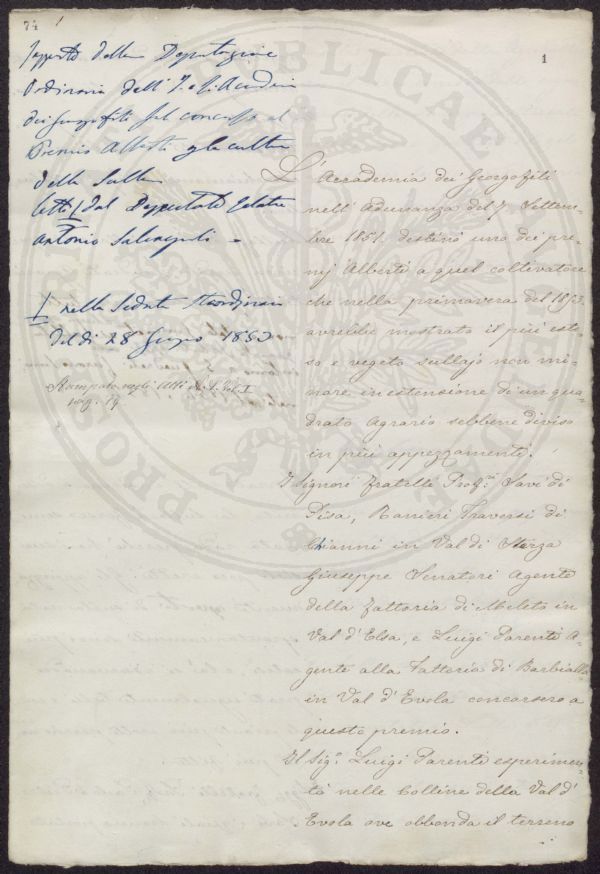 74
1
Rapporto della Deputazione
Ordinaria dell'I. e R. Accademia
dei Georgofili sul concorso al
Premio Alberti per la cultura
della Sulla
letto dal Deputato Relatore
Antonio Salvagnoli =
nella Seduta straordinaria
del dì 28 Giugno 1853
Stampato negli Atti N. S. Vol. I
pag. 19
L'Accademia dei Georgofili
nell'Adunanza del 7 Settem=
bre 1851. destinò uno dei pre=
mj Alberti a quel coltivatore
che nella primavera del 1853.
avrebbe mostrato il più este=
so e vegeto sullajo non mi=
nore in estensione di un qua=
drato agrario sebbene diviso
in più appezzamenti.
I signori Fratelli Prof.ri Savi di
Pisa, Ranieri Traversi di
Chianni in Val di Sterza
Giuseppe Senatori Agente
della Fattoria di Meleto in
Val d'Elsa, e Luigi Parenti A=
gente alla Fattoria di Barbialla
in Val d'Evola concorsero a
questo premio.
Il Sig.r Luigi Parenti esperimen=
tò nelle Colline della Val d'
Evola ove abbonda il terreno
PROSPERITATI PUBLICAE AUGENDAE